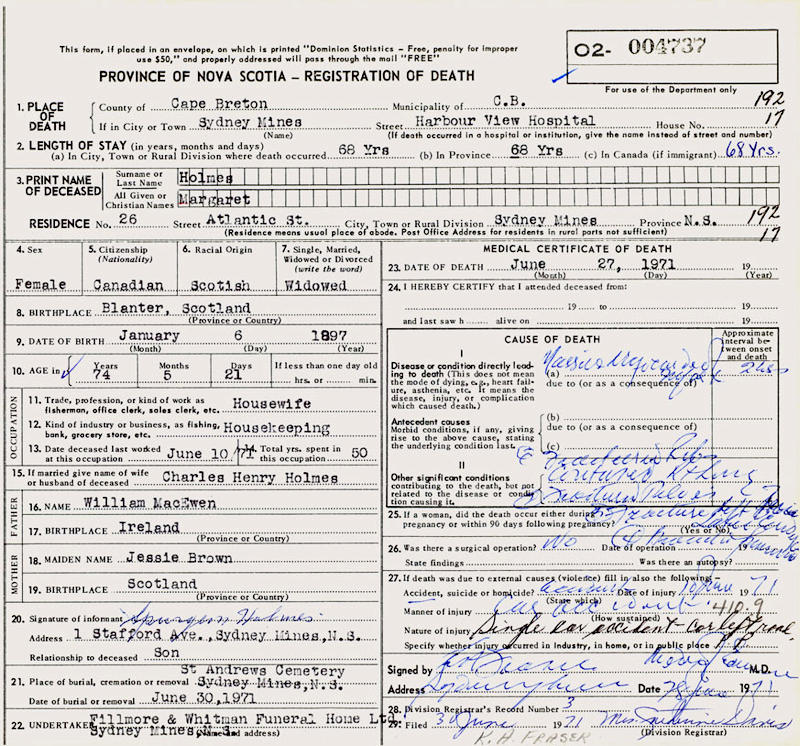 This form, if placed in an envelope, on which is printed "Dominion Statistics – Free, penalty for improper
use $50," and properly addressed will pass through the mail "FREE"
PROVINCE OF NOVA SCOTIA – REGISTRATION OF DEATH
O2- 004737
For use of the Department only
1. PLACE OF DEATH
County of Cape Breton Municipality of C.B. 192
If in City or Town Sydney Mines Street Harbour View Hospital House No. 17
(Name) (If death occurred in a hospital or institution, give the name instead of street and number)
2. LENGTH OF STAY (in years, months and days)
(a) In City, Town or Rural Division where death occurred 68 Yrs (b) In Province 68 Yrs (c) In Canada (if immigrant) 68 Yrs.
3. PRINT NAME OF DECEASED
Surname or Last Name Holmes
All Given or Christian Names Margaret
RESIDENCE No. 26 Street Atlantic St. City, Town or Rural Division Sydney Mines Province N.S. 192
(Residence means usual place of abode. Post Office Address for residents in rural parts not sufficient) 17
4. Sex
Female
5. Citizenship
(Nationality)
Canadian
6. Racial Origin
Scotish
7. Single, Married,
Widowed or Divorced
(write the word)
Widowed
8. BIRTHPLACE Blanter, Scotland
(Province or Country)
9. DATE OF BIRTH January 6 1897
(Month) (Day) (Year)
10. AGE in
Years Months Days If less than one day old
74 5 21 hrs. or min.
OCCUPATION
11. Trade, profession, or kind of work as
fisherman, office clerk, sales clerk, etc. Housewife
12. Kind of industry or business, as fishing,
bank, grocery store, etc. Housekeeping
13. Date deceased last worked
at this occupation June 10/71
14. Total yrs. spent in
this occupation 50
15. If married give name of wife
or husband of deceased Charles Henry Holmes
FATHER
16. NAME William MacEwen
17. BIRTHPLACE Ireland
(Province or Country)
MOTHER
18. MAIDEN NAME Jessie Brown
19. BIRTHPLACE Scotland
(Province or Country)
20. Signature of informant Holmes
Address 1 Stafford Ave., Sydney Mines, N.S.
Relationship to deceased Son
St Andrews Cemetery
21. Place of burial, cremation or removal Sydney Mines, N.S.
Date of burial, cremation or removal June 30, 1971
22. UNDERTAKER Fillmore & Whitman Funeral Home Ltd.
Sydney Mines, N.S.
(Name and address)
MEDICAL CERTIFICATE OF DEATH
23. DATE OF DEATH June 27, 1971 19
(Month) (Day) (Year)
24. I HEREBY CERTIFY that I attended deceased from:
19 to 19
and last saw h alive on 19
CAUSE OF DEATH
Approximate
interval be-
tween onset
and death
I
Disease or condition directly lead-
ing to death (This does not mean
the mode of dying, e.g., heart fail-
ure, asthenia, etc. It means the
disease, injury, or complication
which caused death.)
(a)
due to (or as a consequence of)
Antecedent causes
Morbid conditions, if any, giving
rise to the above cause, stating
the underlying condition last.
(b)
due to (or as a consequence of)
(c)
II
Other significant conditions
contributing to the death, but not
related to the disease or condi-
tion causing it.
25. If a woman, did the death occur either during
pregnancy or within 90 days following pregnancy?
(Yes or No)
26. Was there a surgical operation? No Date of operation 19
State findings Was there an autopsy?
27. If death was due to external causes (violence) fill in also the following–
Accident, suicide or homicide? accident Date of injury 10 June 1971
(State which)
Manner of injury Car accident 410.9
(How sustained)
Nature of injury Single car accident car left road
Specify whether injury occurred in Industry, in home, or in public place
Signed by M.D.
Address Date 28 June 1971
28. Division Registrar's Record Number 3
29. Filed 30 June 1971 Mrs. Davis
(Division Registrar)
K. A. FRASER